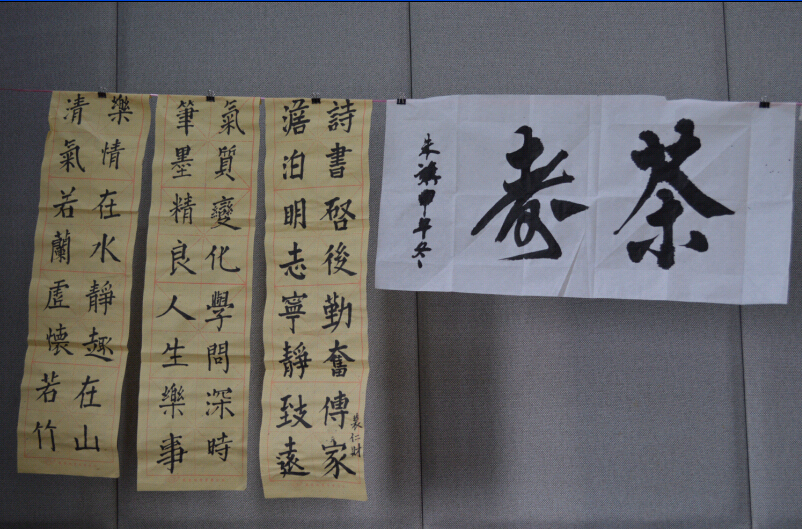 茶寿
冬
詩書啓後勤奮傳家
仁財
澹泊明志寧靜致遠
氣質變化學問深時
筆墨精良人生樂事
樂情在水靜趣在山
清氣若蘭虛懷若竹